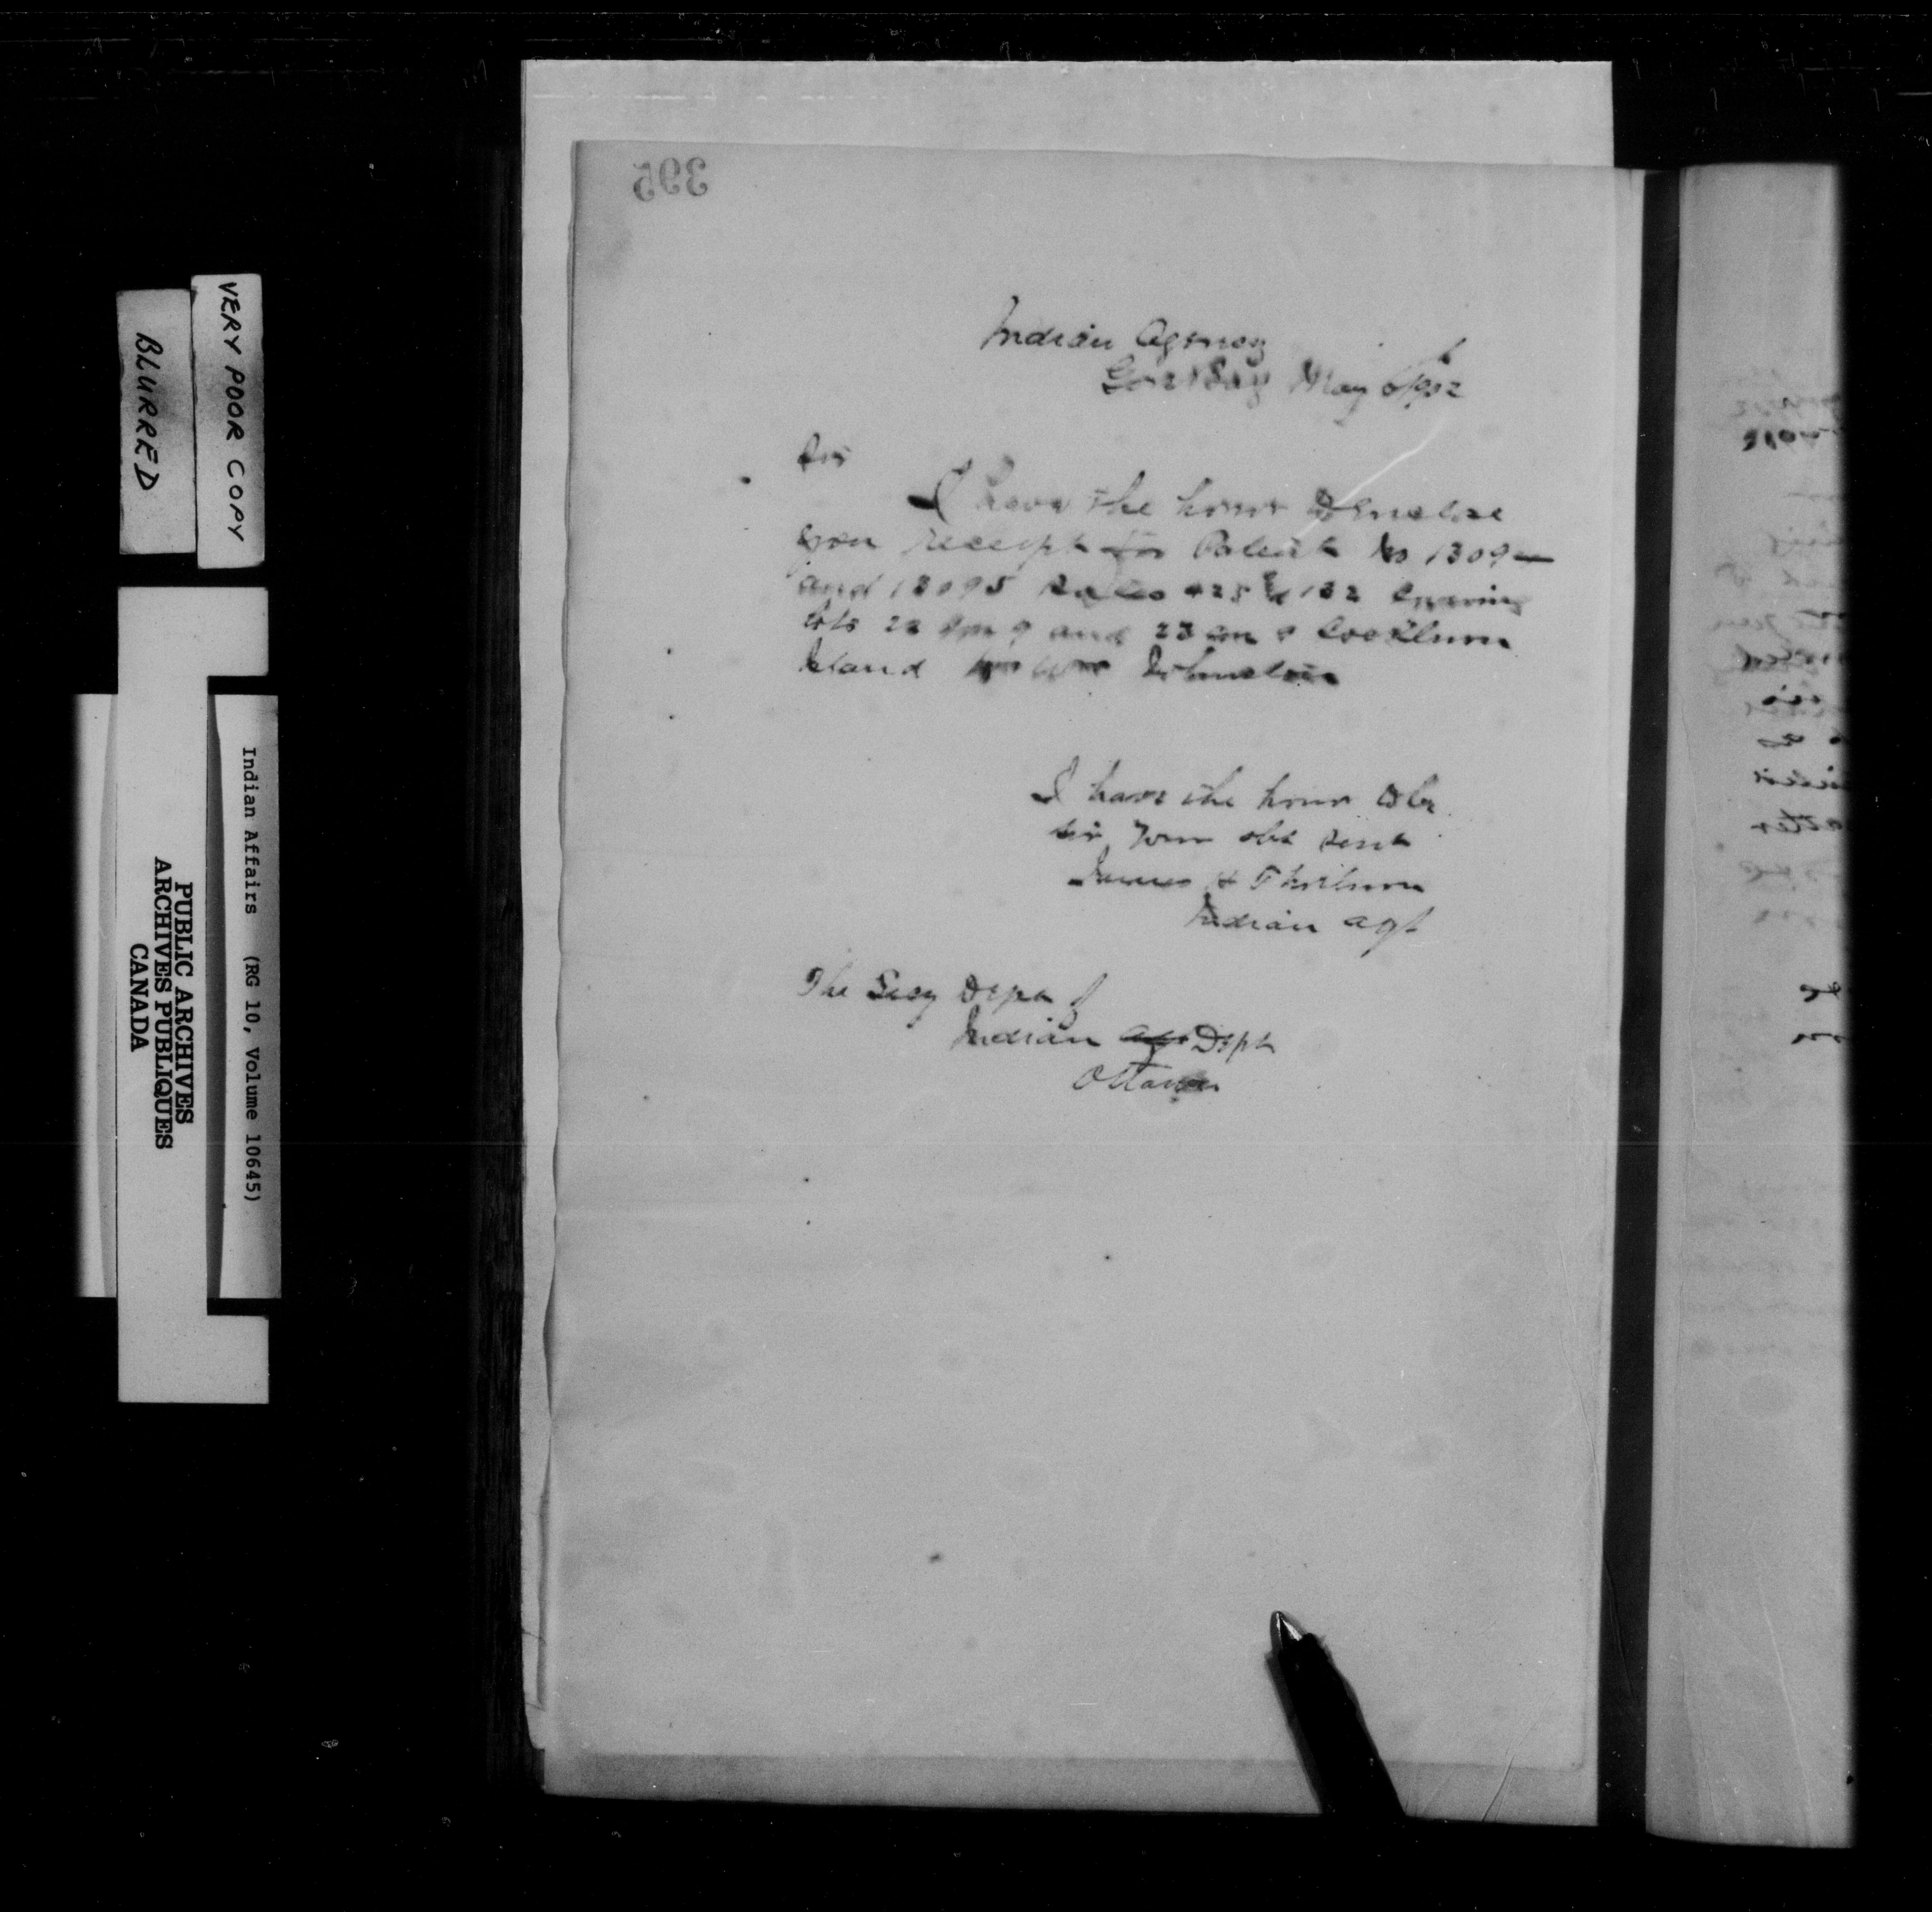 395
Indian Agency
Gore Bay May 6 1902
Sir
I have the honor to enclose
you receipt for Patent No 1309
and 13095 Sales 425 & 132 Covering
lots 22 Con 9 and 23 Con Cockburn
Island Johnston
I have the honor to be
Sir Your obt Servt
James H Thorburn
Indian agt
The Secy Dept of
Indian Dept
Ottawa
VERY POOR COPY
BLURRED
Indian Affairs (RG 10, Volume 10645)
PUBLIC ARCHIVES
ARCHIVES PUBLIQUES
CANADA